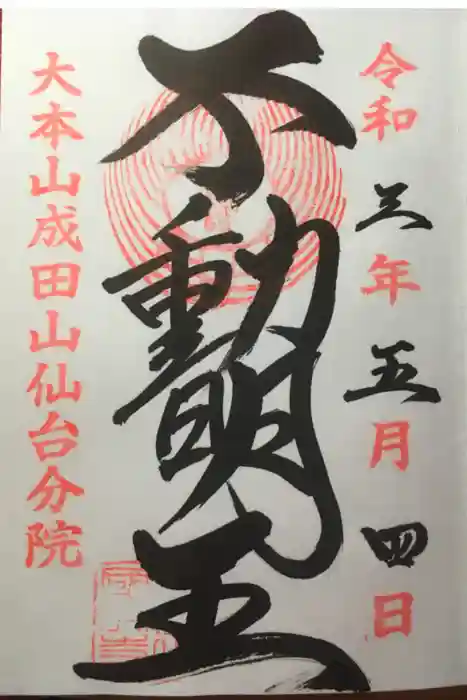 令和三年五月四日
不動明王
大本山成田山仙台分院